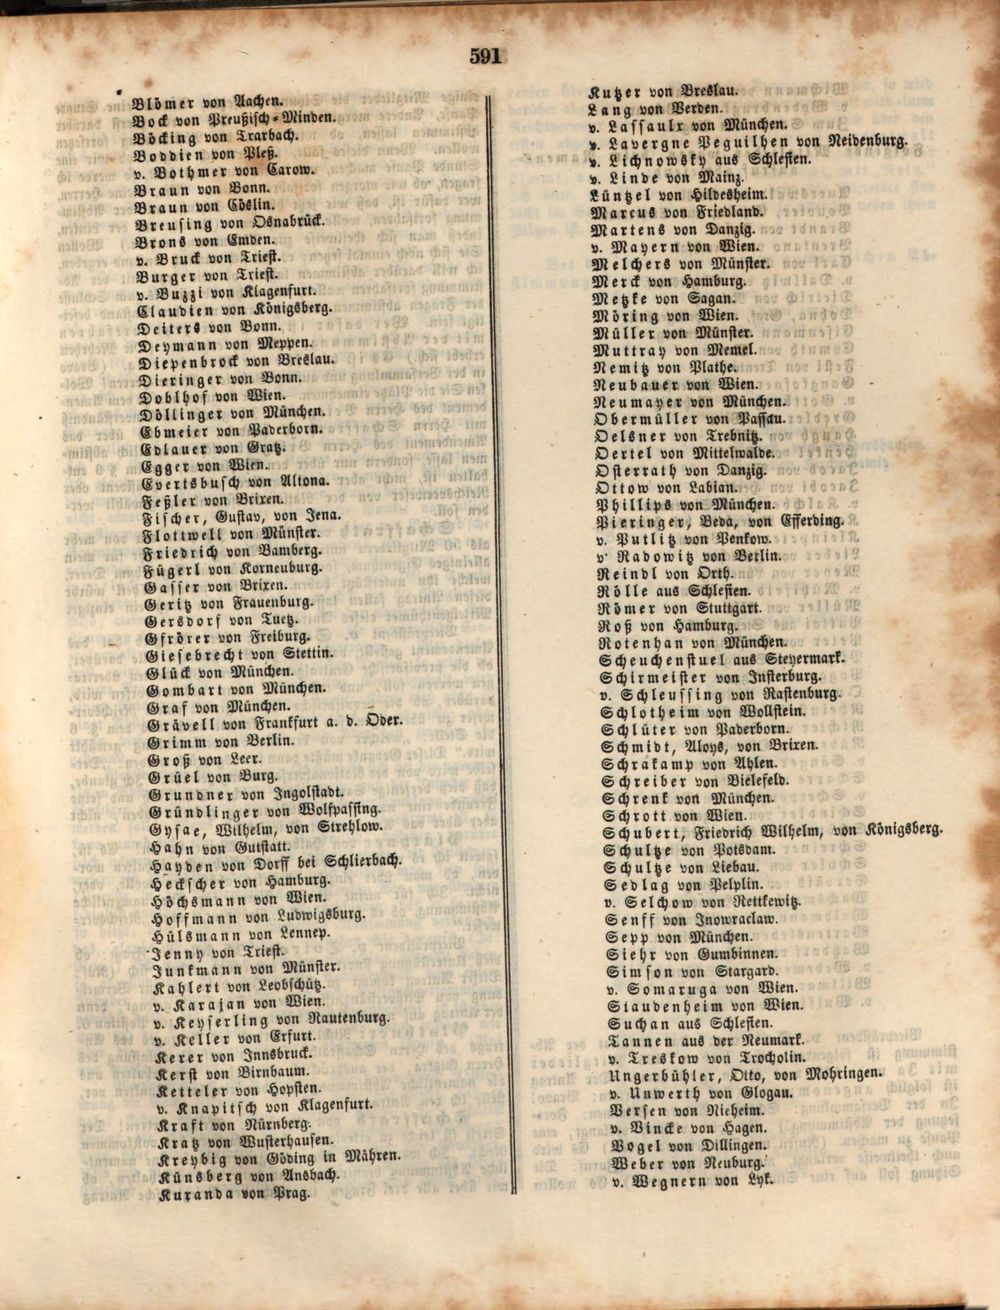 591
Blömer von Aachen.
Bock von Preußisch-Minden.
Böcking von Trarbach.
Boddien von Pleß.
v. Bothmer von Carow.
Braun von Bonn.
Braun von Cöslin.
Breusing von Osnabrück.
Brons von Emden.
v. Bruck von Triest.
Burger von Triest.
v. Buzzi von Klagenfurt.
Claudien von Königsberg.
Deiters von Bonn.
Deymann von Meppen.
Diepenbrock von Breslau.
Dieringer von Bonn.
Doblhof von Wien.
Döllinger von München.
Ebmeier von Paderborn.
Edlauer von Gratz.
Egger von Wien.
Evertsbusch von Altona.
Feßler von Brixen.
Fischer, Gustav, von Jena.
Flottwell von Münster.
Friedrich von Bamberg.
Fügerl von Korneuburg.
Gasser von Brixen.
Geritz von Frauenburg.
Gersdorf von Tuetz.
Gfrörer von Freiburg.
Giesebrecht von Stettin.
Glück von München.
Gombart von München.
Graf von München.
Grävell von Frankfurt a. d. Oder.
Grimm von Berlin.
Groß von Leer.
Grüel von Burg.
Grundner von Ingolstadt.
Gründlinger von Wolfpassing.
Gysae, Wilhelm, von Strehlow.
Hahn von Gutstatt.
Hayden von Dorff bei Schlierbach.
Heckscher von Hamburg.
Höchsmann von Wien.
Hoffmann von Ludwigsburg.
Hülsmann von Lennep.
Jenny von Triest.
Junkmann von Münster.
Kahlert von Leobschütz.
v. Karajan von Wien.
v. Keyserling von Rautenburg.
v. Keller von Erfurt.
Kerer von Innsbruck.
Kerst von Birnbaum.
Ketteler von Hopsten.
v. Knapitsch von Klagenfurt.
Kraft von Nürnberg.
Kratz von Wusterhausen.
Kreybig von Göding in Mähren.
Künsberg von Ansbach.
Kuranda von Prag.
Kutzer von Breslau.
Lang von Verden.
v. Lassaulx von München.
v. Lavergne Peguilhen von Neidenburg.
v. Lichnowsky aus Schlesien.
v. Linde von Mainz.
Lüntzel von Hildesheim.
Marcus von Friedland.
Martens von Danzig.
v. Mayern von Wien.
Melchers von Münster.
Merck von Hamburg.
Metzke von Sagan.
Möring von Wien.
Müller von Münster.
Muttray von Memel.
Nemitz von Plathe.
Neubauer von Wien.
Neumayer von München.
Obermüller von Passau.
Oelsner von Trebnitz.
Oertel von Mittelwalde.
Osterrath von Danzig.
Ottow von Labian.
Phillips von München.
Pieringer, Beda, von Efferding.
v. Putlitz von Penkow.
v. Radowitz von Berlin.
Reindl von Orth.
Rölle aus Schlesien.
Römer von Stuttgart.
Roß von Hamburg.
Rotenhan von München.
Scheuchenstuel aus Steyermark.
Schirmeister von Insterburg.
v. Schleussing von Rastenburg.
Schlotheim von Wollstein.
Schlüter von Paderborn.
Schmidt, Aloys, von Brixen.
Schrakamp von Ahlen.
Schreiber von Bielefeld.
Schrenk von München.
Schrott von Wien.
Schubert, Friedrich Wilhelm, von Königsberg.
Schultze von Potsdam.
Schultze von Liebau.
Sedlag von Pelplin.
v. Selchow von Rettkewitz.
Senff von Inowraclaw.
Sepp von München.
Siehr von Gumbinnen.
Simson von Stargard.
v. Somaruga von Wien.
Staudenheim von Wien.
Suchan aus Schlesien.
Tannen aus der Neumark.
v. Treskow von Trocholin.
Ungerbühler, Otto, von Mohringen.
v. Unwerth von Glogau.
Versen von Nieheim.
v. Vincke von Hagen.
Vogel von Dillingen.
Weber von Neuburg.
v. Wegnern von Lyk.